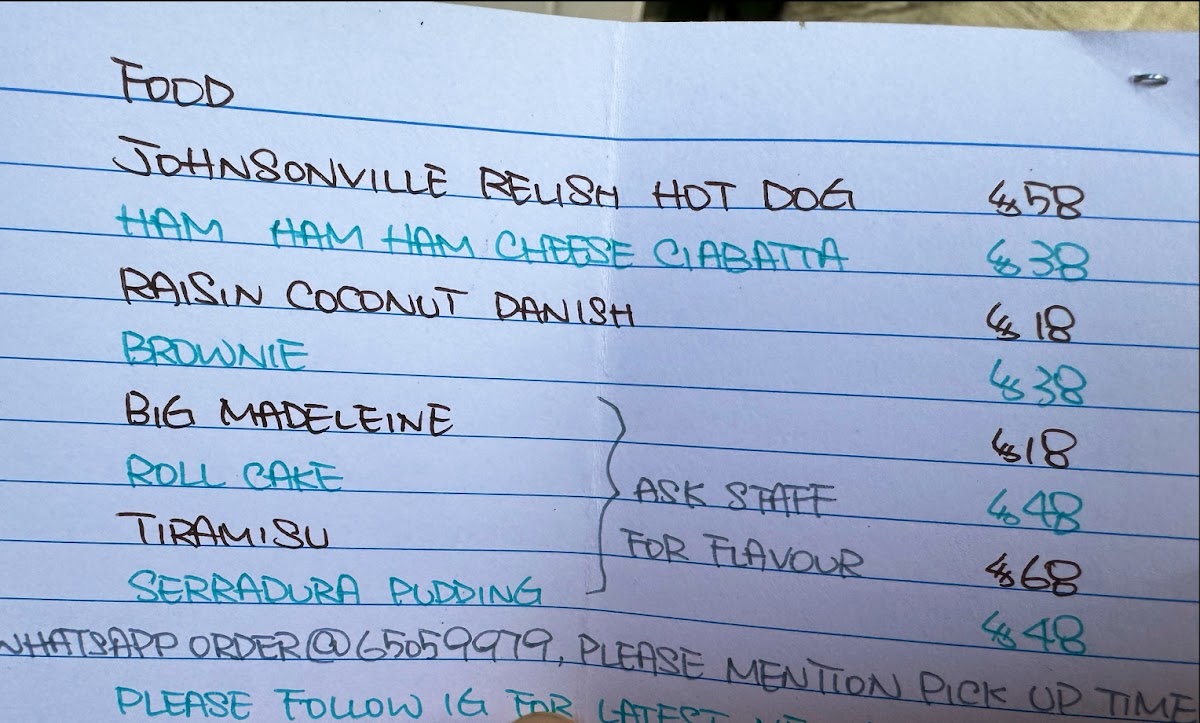 FOOD
JOHNSONVILLE RELISH HOT DOG $58
HAM HAM HAM CHEESE CIABATTA $38
RAISIN COCONUT DANISH $18
BROWNIE $38
BIG MADELEINE $18
ROLL CAKE $48
ASK STAFF
TIRAMISU $68
FOR FLAVOUR
SERRADURA PUDDING $48
WHATSAPP ORDER@65059979, PLEASE MENTION PICK UP TIME
PLEASE FOLLOW IG FOR LATEST